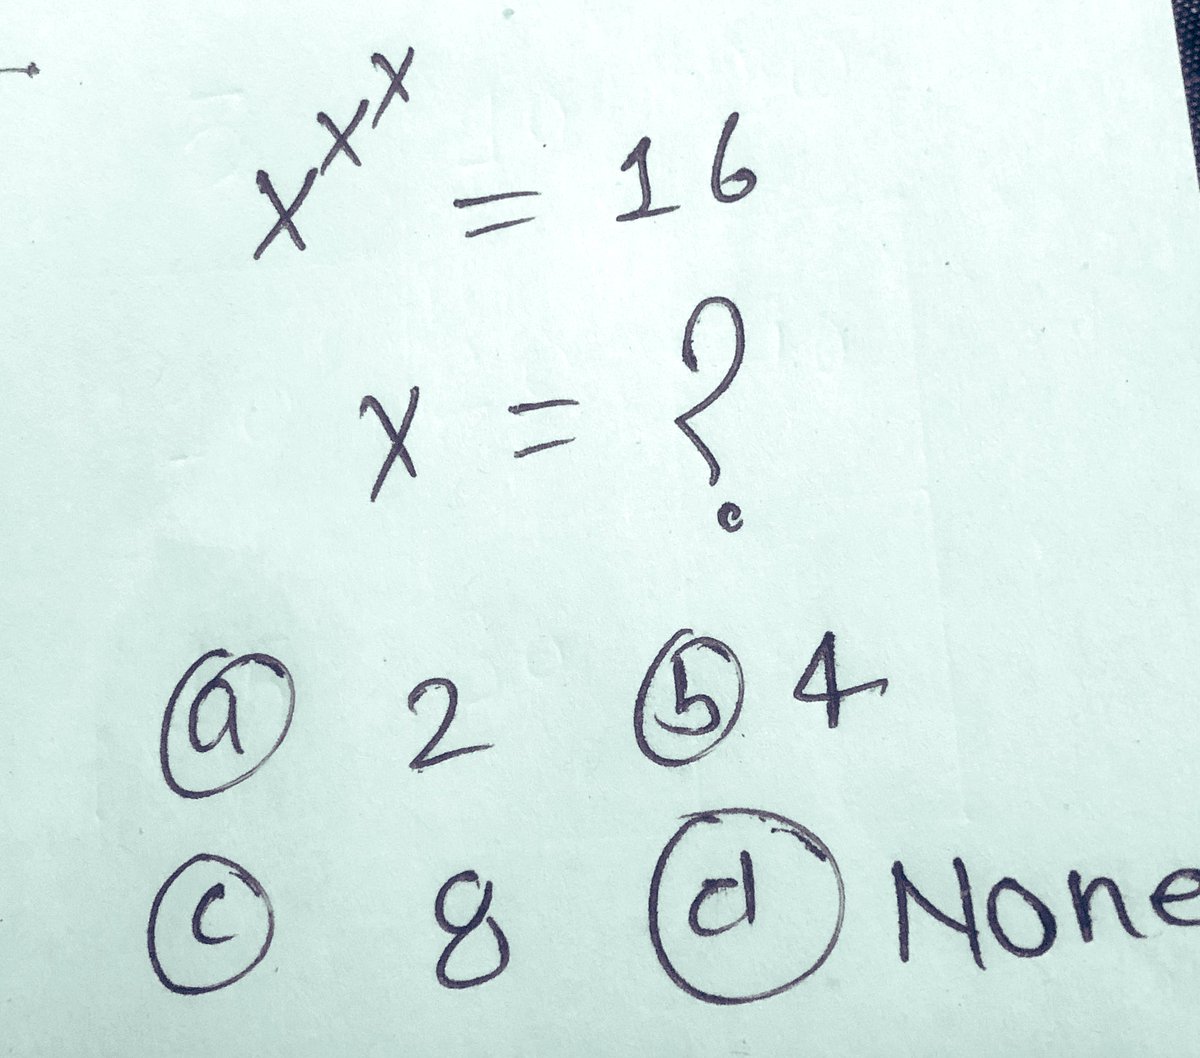 x^x^x = 16
x = ?
ⓐ 2 ⓑ 4
ⓒ 8 ⓓ None